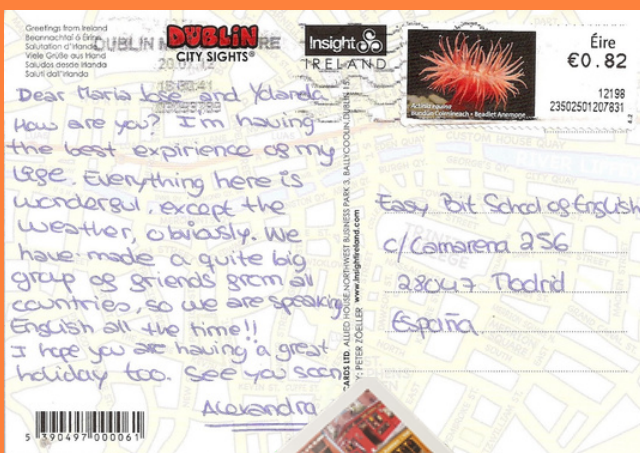 Greetings from Ireland
Beannachtaí ó Éirinn
Salutation d'Irlande
Viele Grüße aus Irland
Saludos desde Irlanda
Saluti dall'Irlanda
DUBLIN
CITY SIGHTS®
DUBLIN M RE
Insight
IRELAND
Éire
€0.82
12198
23502501207831
Actinia equina
Bundún Coimíneach • Beadlet Anemone
Dear Maria Jose and Yolanda
How are you? I'm having
the best expirience of my
life. Everything here is
wonderful, except the
weather, obiously. We
have made a quite big
group of friends from all
countries, so we are speaking
English all the time!!
I hope you are having a great
holiday too. See you soon
Alexandra
CARDS LTD, ALLIED HOUSE, NORTHWEST BUSINESS PARK 3, BALLYCOOLIN, DUBLIN 15.
PETER ZÖELLER www.insightireland.com
Easy Bit School of English
c/Camarena 256
28047 Madrid
España
5 390497 000061